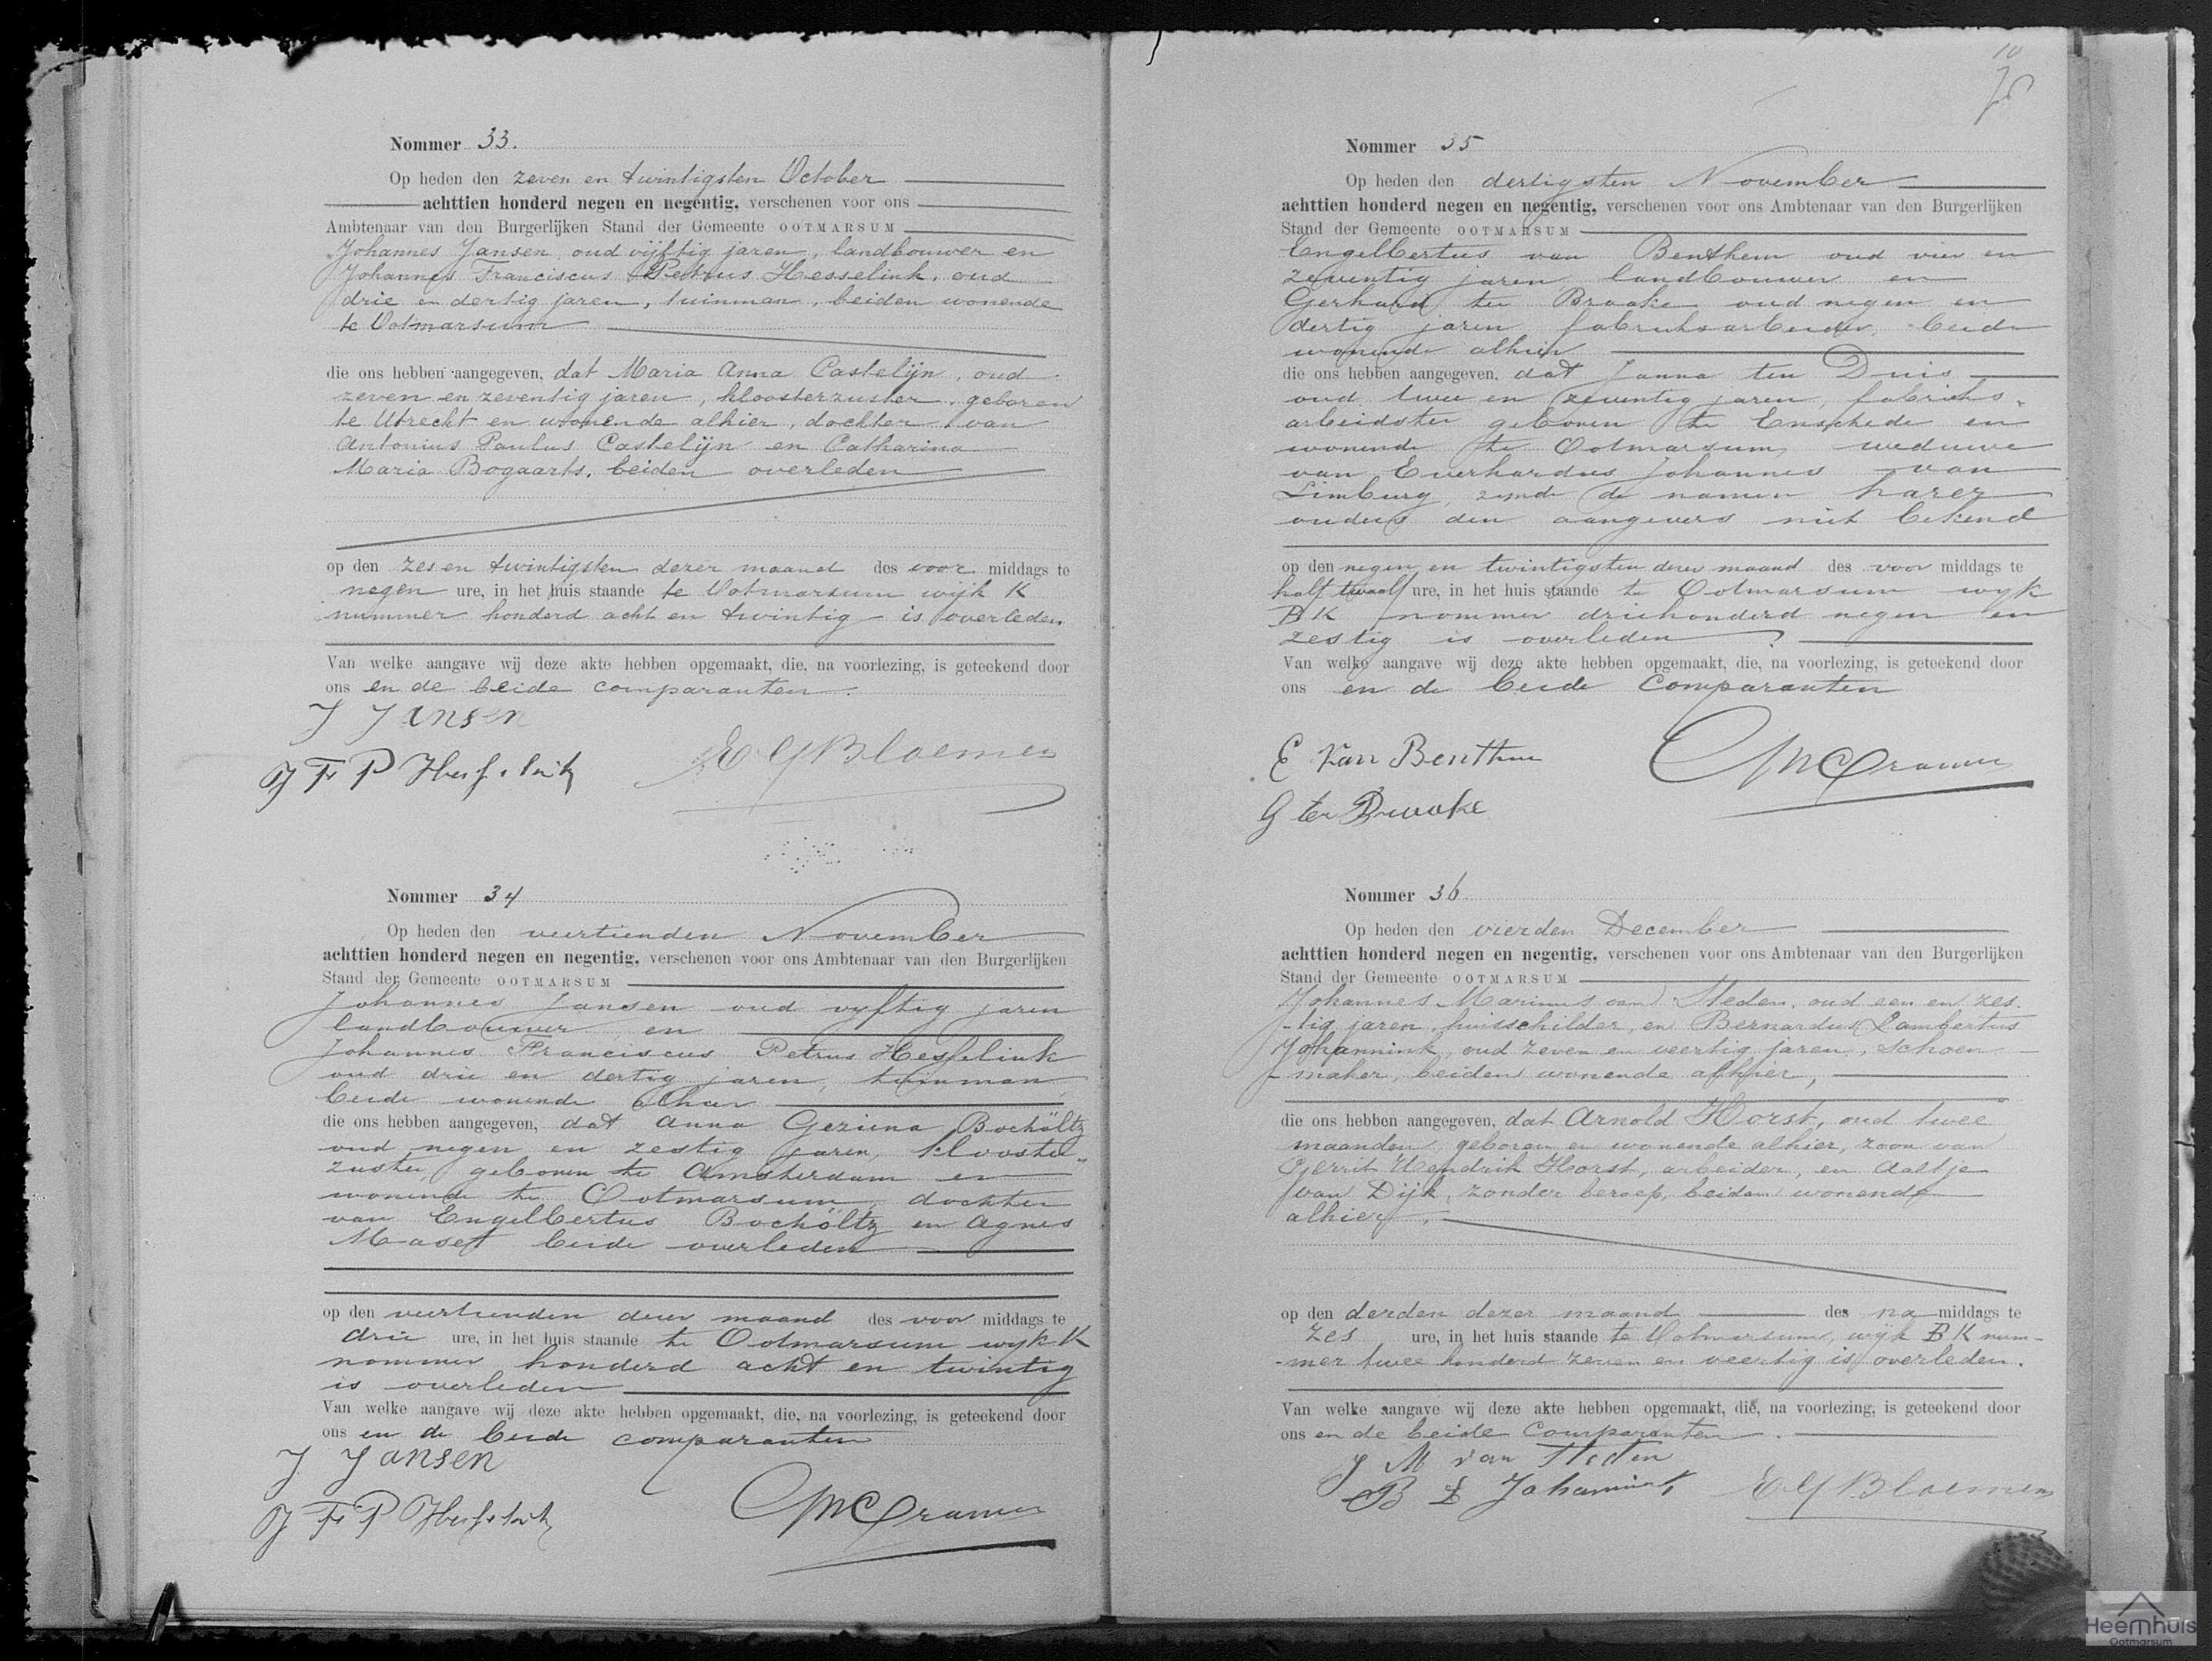 Nommer 33.
Op heden den zeven en twintigsten October
achttien honderd negen en negentig, verschenen voor ons
Ambtenaar van den Burgerlijken Stand der Gemeente OOTMARSUM
Johannes Jansen, oud vijftig jaren, landbouwer en
Johannes Franciscus Petrus Hesselink, oud
drie en dertig jaren, tuinman, beiden wonende
te Ootmarsum
die ons hebben aangegeven, dat Maria Anna Castelijn, oud
zeven en zeventig jaren, kloosterzuster, geboren
te Utrecht en wonende alhier, dochter van
Antonius Paulus Castelijn en Catharina
Maria Bogaarts, beiden overleden
op den zes en twintigsten dezer maand des voor middags te
negen ure, in het huis staande te Ootmarsum wijk K
nummer honderd acht en twintig is overleden
Van welke aangave wij deze akte hebben opgemaakt, die, na voorlezing, is geteekend door
ons en de beide comparanten.
J Jansen
J F P Hesselink
E G Bloemen
Nommer 34
Op heden den veertienden November
achttien honderd negen en negentig, verschenen voor ons Ambtenaar van den Burgerlijken
Stand der Gemeente OOTMARSUM
Johannes Jansen oud vyftig jaren
landbouwer en
Johannes Franciscus Petrus Hesselink
oud drie en dertig jaren, tuinman
beide wonende alhier
die ons hebben aangegeven, dat Anna Geziena Bochöltz
oud negen en zestig jaren, klooster-
zuster, geboren te Amsterdam en
wonende te Ootmarsum, dochter
van Engelbertus Bochöltz en Agnes
Maseft beide overleden
op den veertienden dezer maand des voor middags te
drie ure, in het huis staande te Ootmarsum wyk K
nommer honderd acht en twintig
is overleden
Van welke aangave wij deze akte hebben opgemaakt, die, na voorlezing, is geteekend door
ons en de beide comparanten
J Jansen
J F P Hesselink
Cramer
10
Nommer 35
Op heden den dertigsten November
achttien honderd negen en negentig, verschenen voor ons Ambtenaar van den Burgerlijken
Stand der Gemeente OOTMARSUM
Engelbertus van Benthem oud vier en
zeventig jaren landbouwer en
Gerhard ter Braake oud negen en
dertig jaren fabrieksarbeider, beide
wonende alhier
die ons hebben aangegeven, dat Janna ten Duis
oud twee en zeventig jaren, fabrieks-
arbeidster geboren te Enschede en
wonende te Ootmarsum, weduwe
van Everhardus Johannes van
Limburg, zynde de namen harer
ouders den aangevers niet bekend
op den negen en twintigsten dezer maand des voor middags te
half twaalf ure, in het huis staande te Ootmarsum wyk
BK nommer driehonderd negen en
zestig is overleden
Van welke aangave wij deze akte hebben opgemaakt, die, na voorlezing, is geteekend door
ons en de beide Comparanten
E van Benthem
G ter Braake
Cramer
Nommer 36
Op heden den vierden December
achttien honderd negen en negentig, verschenen voor ons Ambtenaar van den Burgerlijken
Stand der Gemeente OOTMARSUM
Johannes Marinus van Steden, oud een en zes-
-tig jaren, huisschilder, en Bernardus Lambertus
Johannink, oud zeven en veertig jaren, Schoen-
-maker, beiden wonende alhier,
die ons hebben aangegeven, dat Arnold Horst, oud twee
maanden, geboren en wonende alhier, zoon van
Gerrit Hendrik Horst, arbeider, en Aaltje
van Dijk, zonder beroep, beiden wonende
alhier,
op den derden dezer maand des na middags te
zes ure, in het huis staande te Ootmarsum, wijk BK num-
-mer twee honderd zeven en veertig is overleden.
Van welke aangave wij deze akte hebben opgemaakt, die, na voorlezing, is geteekend door
ons en de beide Comparanten.
J M van Steden
B L Johannink
E G Bloemen
Heemhuis
Ootmarsum